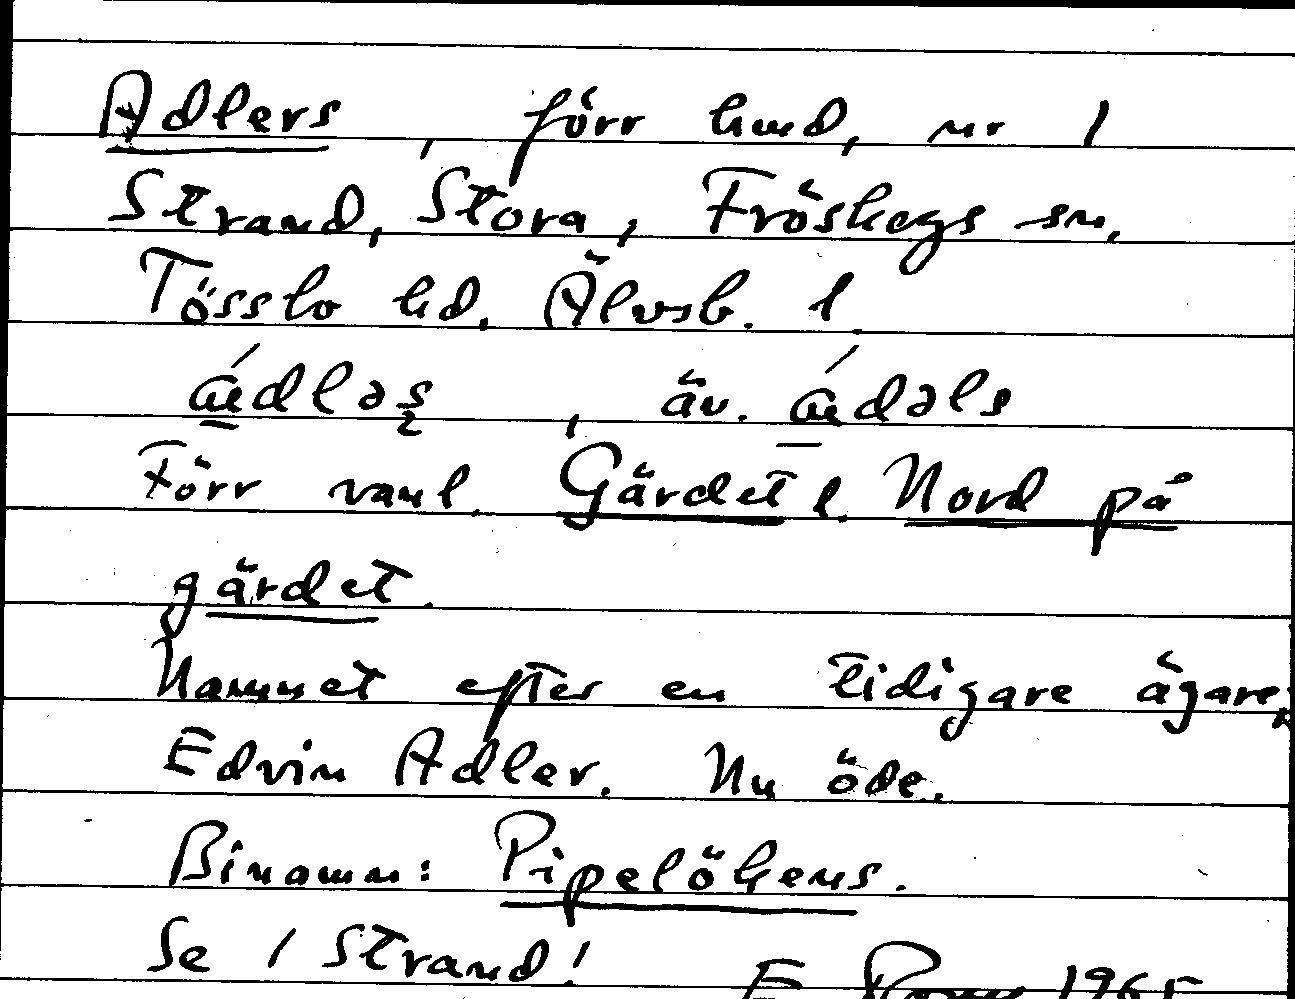 Adlers, förr hmd, nr 1
Strand, Stora, Fröskogs sn,
Tössbo hd. Älvsb. l.
ǽdləs̡, äv. ǽdəls
Förr vanl. Gärdet l. Nord på
gärdet.
Namnet efter en tidigare ägare,
Edvin Adler. Nu öde.
Binamn: Pipelökens.
Se 1 Strand!
1965